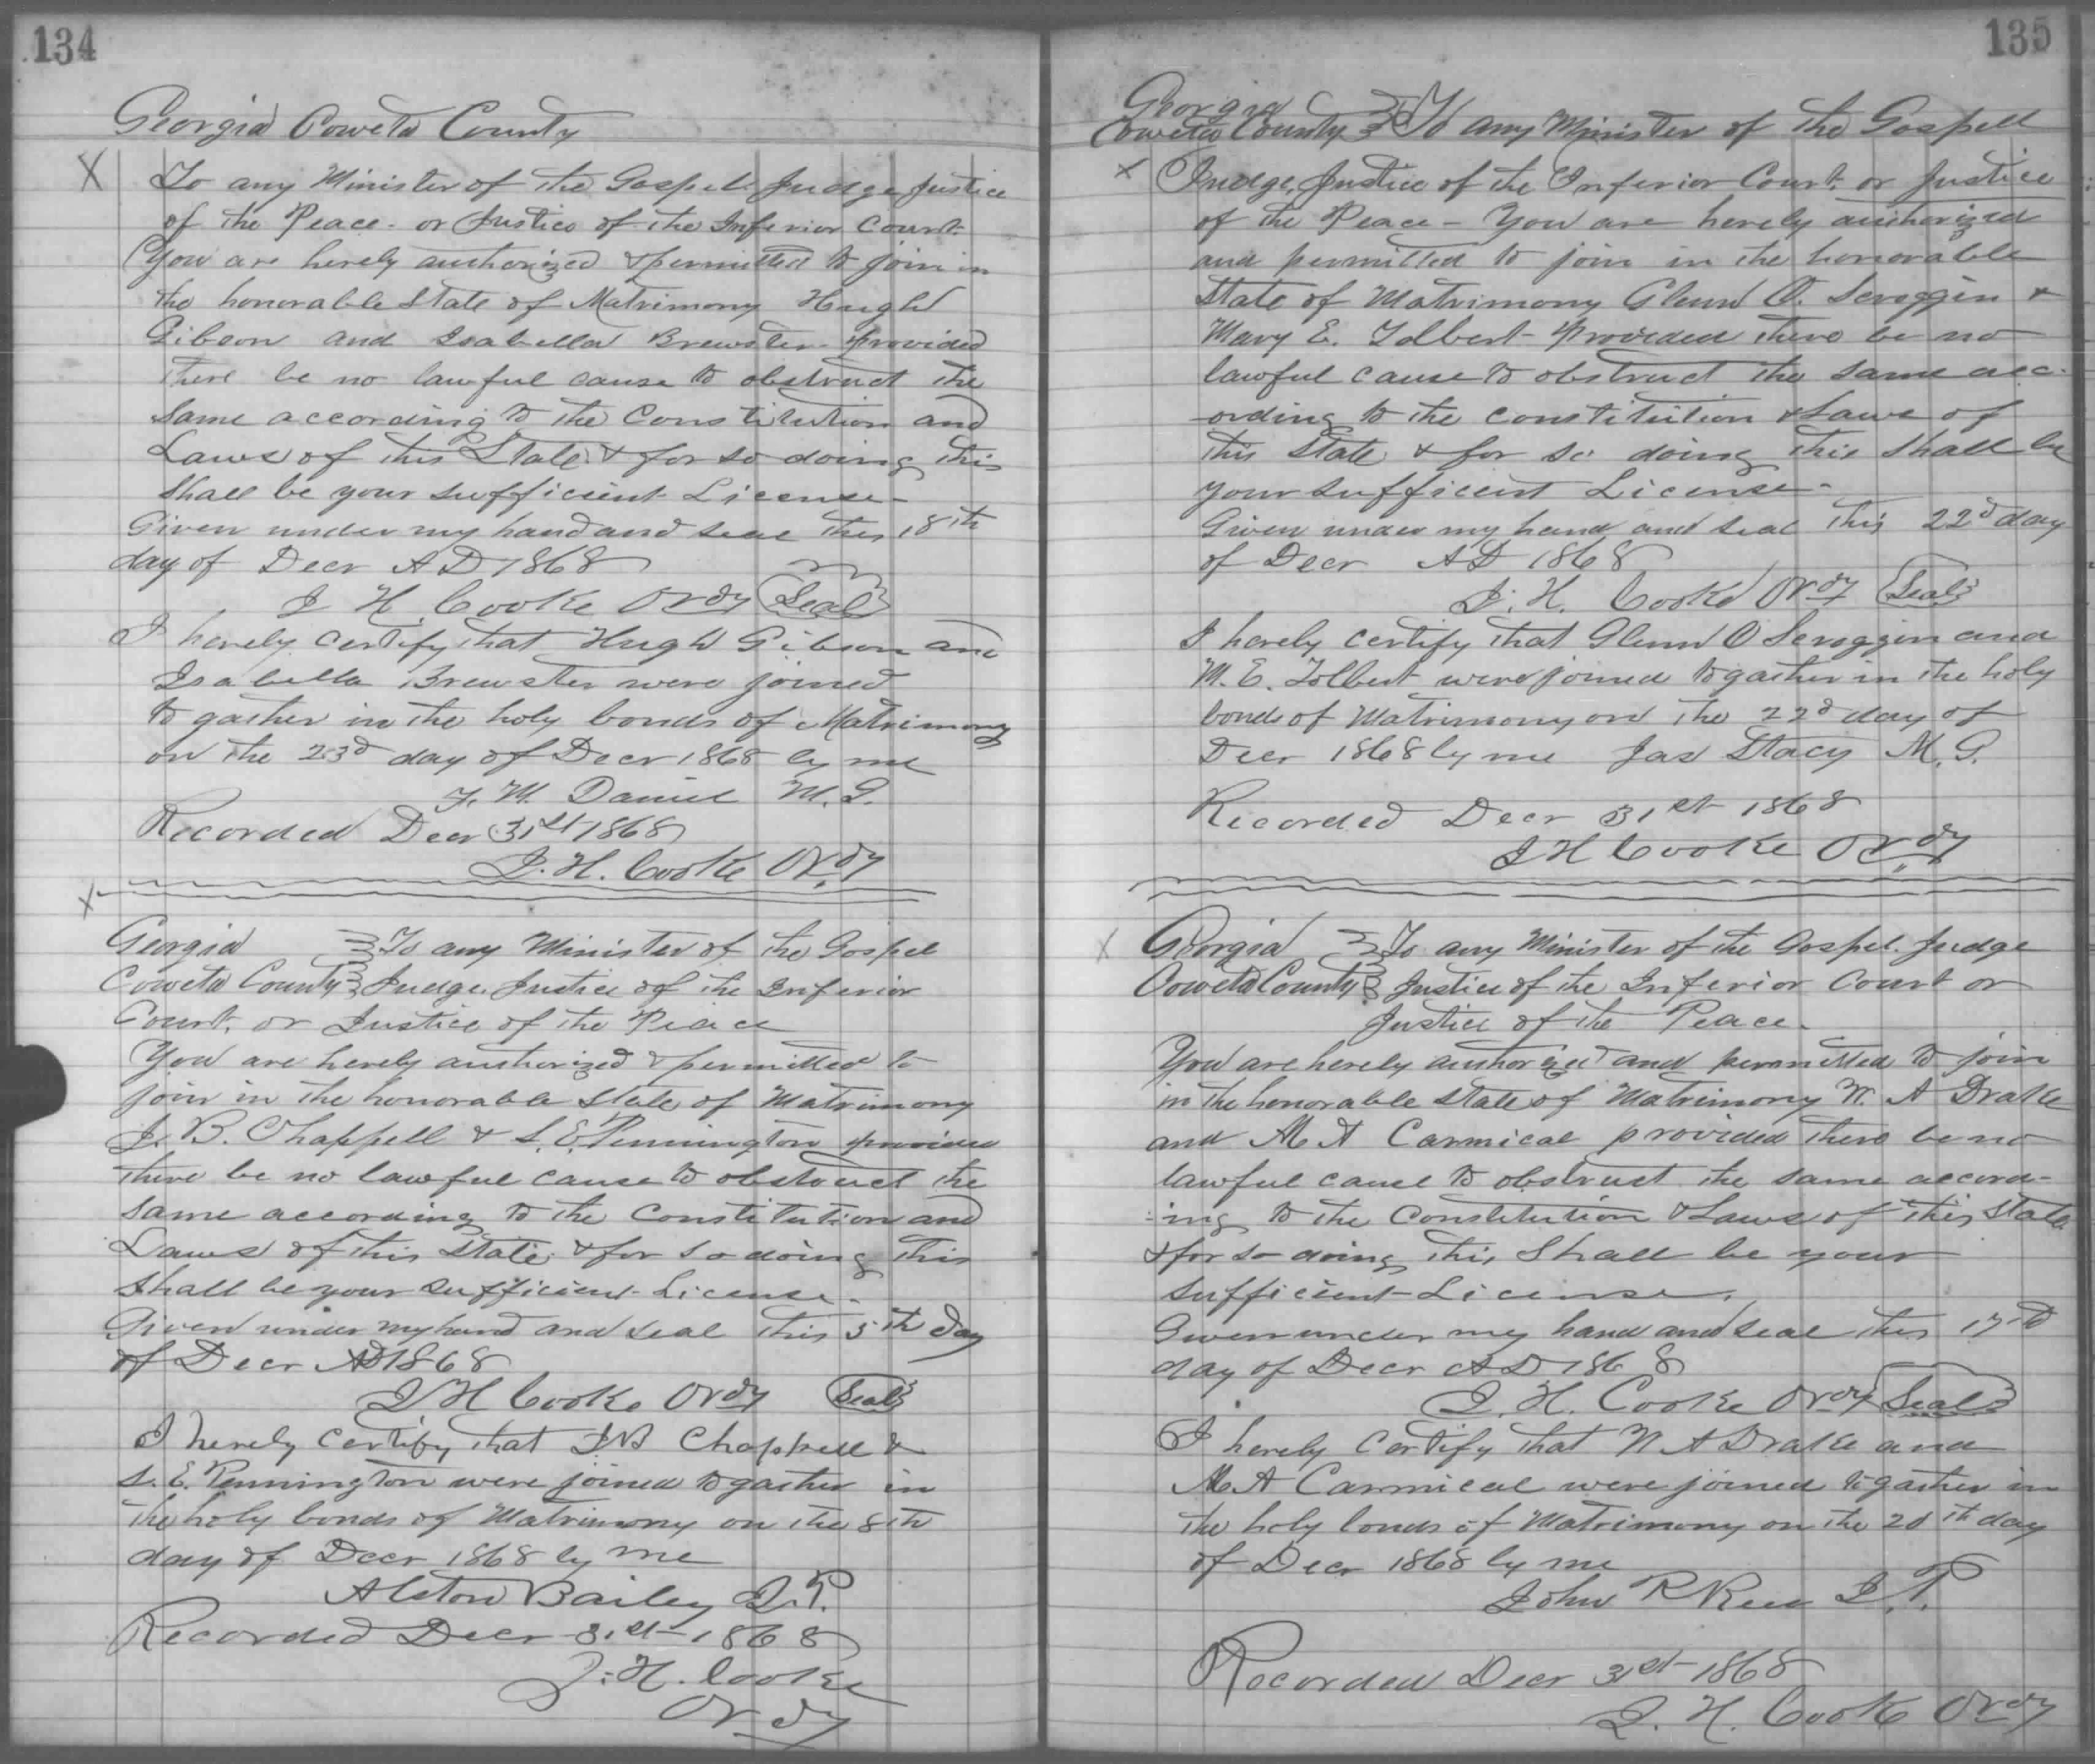 134
Georgia Coweta County
X To any Minister of the Gospel Judge Justice
of the Peace - or Justice of the Inferior Court
You are hereby authorized & permitted to join in
the honorable State of Matrimony Hugh
Gibson and Isabella Brewster provided
there be no lawful cause to obstruct the
same according to the Constitution and
Laws of this State & for so doing this
shall be your sufficient License -
Given under my hand and seal this 18th
day of Decr A D 1868
J H. Cooke Ordy Seal
I hereby certify that Hugh Gibson and
Isabella Brewster were joined
to gather in the holy bonds of Matrimony
on the 23d day of Decr 1868 by me
F. M. Daniel M. G.
Recorded Decr 31st 1868
J. H. Cooke Ordy
X
Georgia To any Minister of the Gospel
Coweta County Judge Justice of the Inferior
Court, or Justice of the Peace
You are hereby authorized & permitted to
join in the honorable State of Matrimony
J. B. Chappell & S. E. Pennington provided
there be no lawful cause to obstruct the
same according to the Constitution and
Laws of this State & for so doing this
shall be your sufficient License -
Given under my hand and seal this 5th day
of Decr AD 1868
J H Cooke Ordy Seal
I hereby certify that J B Chappell &
S. E. Pennington were joined to gather in
the holy bonds of Matrimony on the 8th
day of Decr 1868 by me
Alston Bailey J. P.
Recorded Decr 31st 1868
J. H. Cooke
Ordy
135
Georgia
Coweta County To any Minister of the Gospell
X Judge, Justice of the Inferior Court or Justice
of the Peace - You are hereby authorized
and permitted to join in the honorable
State of Matrimony Glenn O. Scroggin &
Mary E. Tolbert - Provided there be no
lawful cause to obstruct the same acc-
ording to the constitution & Laws of
this State & for so doing this shall be
your sufficient License -
Given under my hand and seal this 22d day
of Decr AD 1868
J. H. Cooke Ordy Seal
I hereby certify that Glenn O Scroggin and
M. E. Tolbert were joined to gather in the holy
bonds of Matrimony on the 22d day of
Decr 1868 by me Jas Stacy M. G.
Recorded Decr 31st 1868
J H Cooke Ordy
X Georgia To any Minister of the Gospel Judge
Coweta County Justice of the Inferior Court or
Justice of the Peace -
You are hereby authorized and permitted to join
in the honorable State of Matrimony W. A Drake
and M A Carmical provided there be no
lawful cause to obstruct the same accord-
ing to the Constitution & Laws of this State
& for so doing this Shall be your
sufficient License.
Given under my hand and seal this 17th
day of Decr A D 1868
J. H. Cooke Ordy Seal
I hereby certify that W A Drake and
M. A Carmical were joined to gather in
the holy bonds of Matrimony on the 20th day
of Decr 1868 by me
John R J. P.
Recorded Decr 31st 1868
J. H. Cooke Ordy